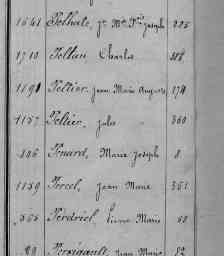 1641 Pelhate, Jn Mie Fs Joseph 225
1710 Peltan, Charles 318
1191 Peltier, Jean Marie Auguste 174
1157 Peltier, Jules 360
806 Penard, Marie Joseph 8
1159 Percel, Jean Marie 361
565 Perdriel, Pierre Marie 68
29 Perrigault, Jean Marie 52